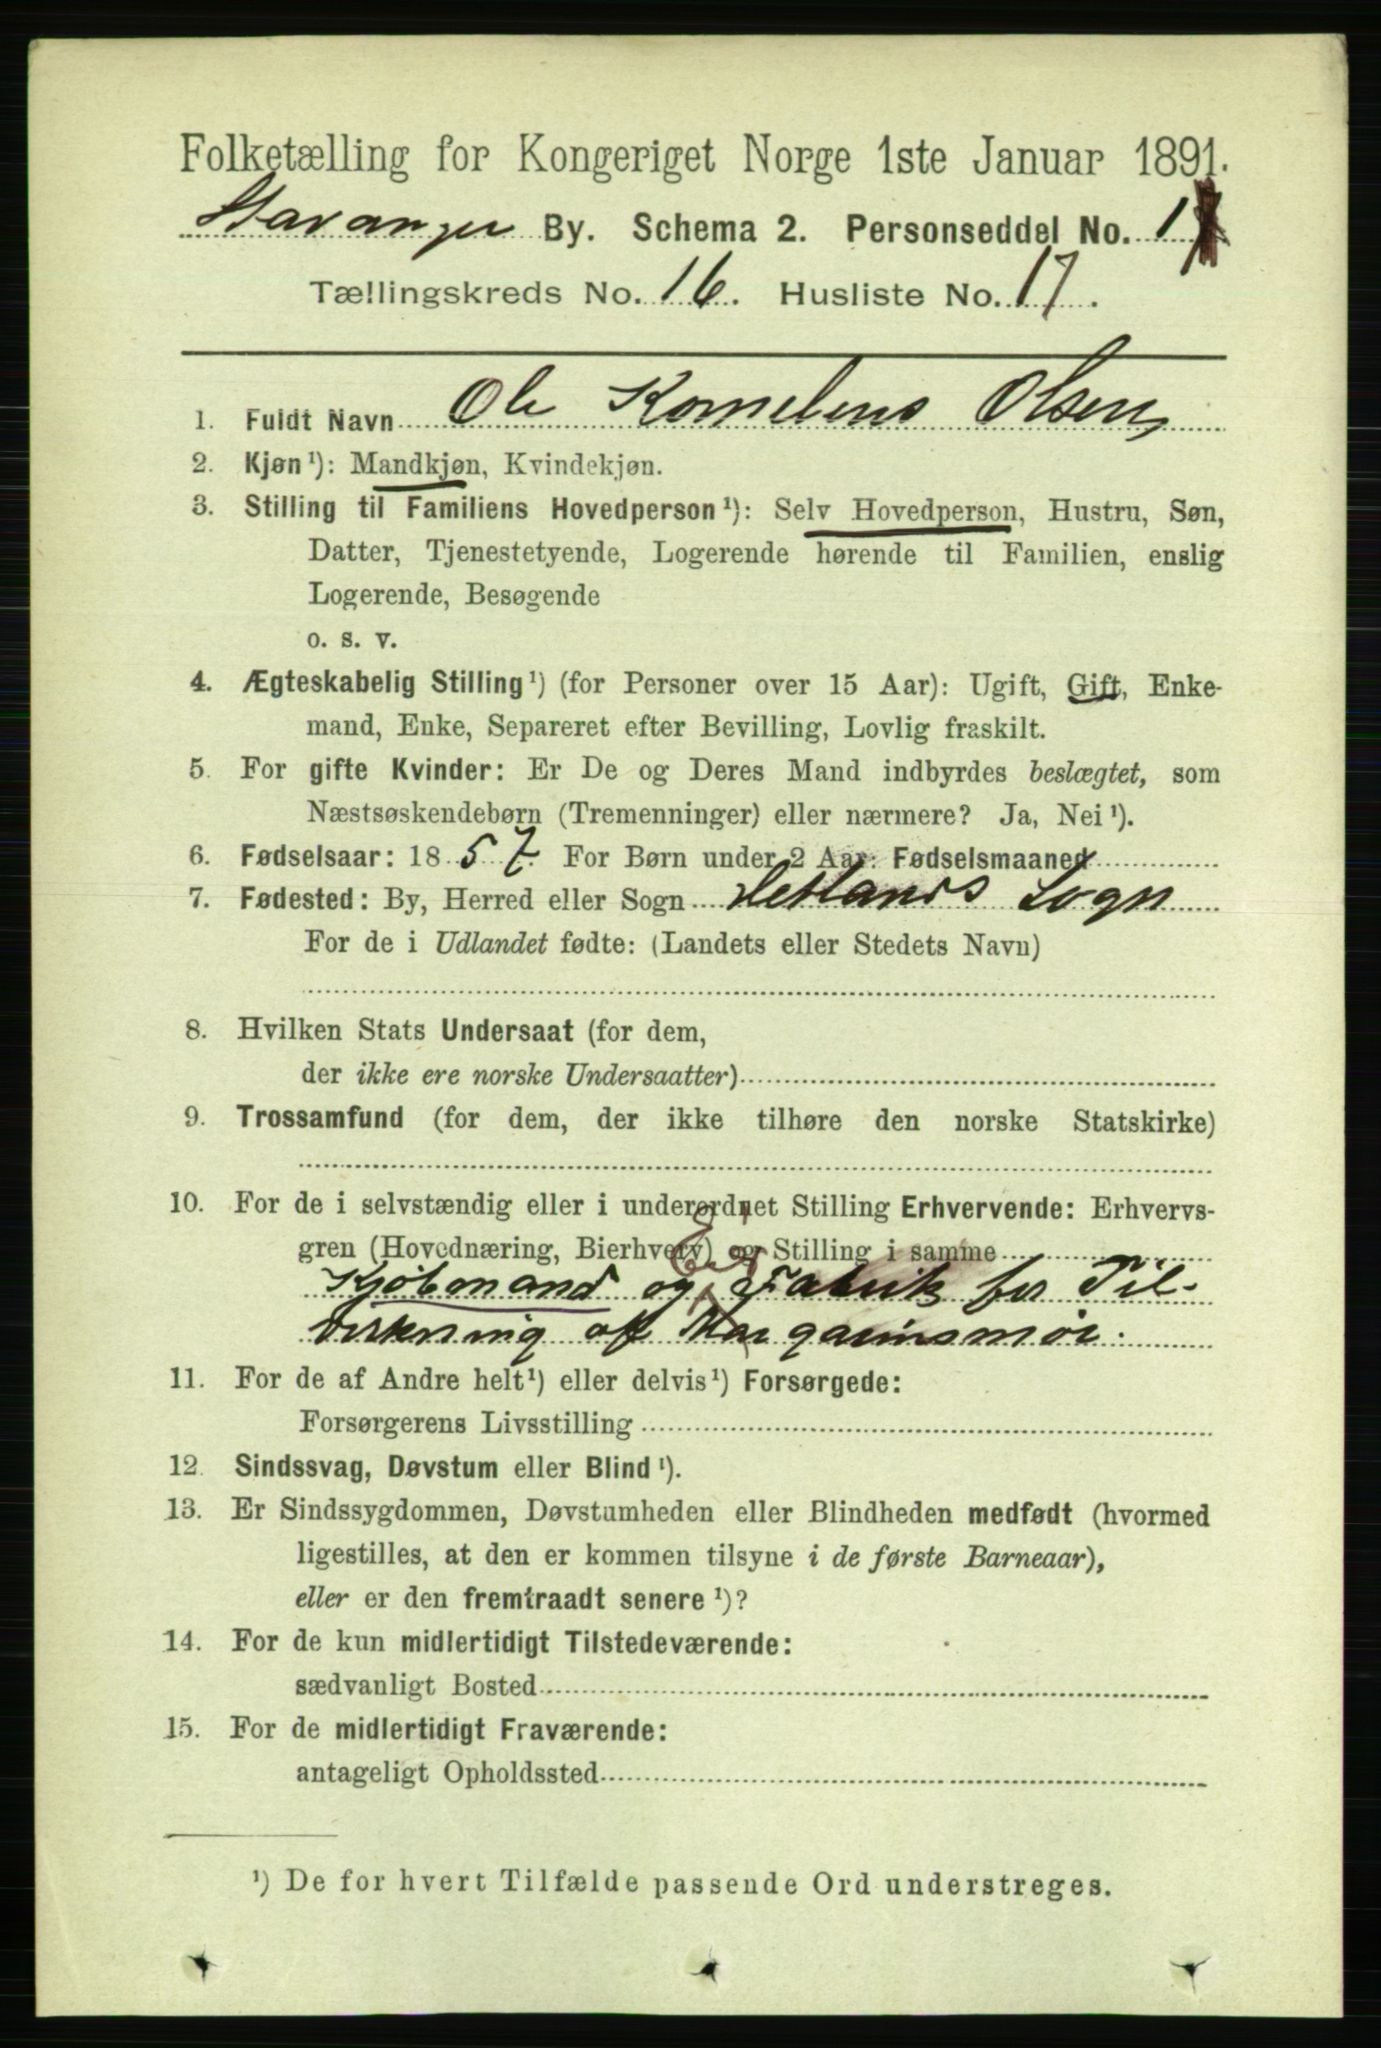 Folketælling for Kongeriget Norge 1ste Januar 1891.
Stavanger By. Schema 2. Personseddel No. 1
Tællingskreds No. 16. Husliste No. 17.
1. Fuldt Navn Ole Kornelius Olsen,
2. Kjøn¹): Mandkjøn, Kvindekjøn.
3. Stilling til Familiens Hovedperson¹): Selv Hovedperson, Hustru, Søn,
Datter, Tjenestetyende, Logerende hørende til Familien, enslig
Logerende, Besøgende
o. s. v.
4. Ægteskabelig Stilling¹) (for Personer over 15 Aar): Ugift, Gift, Enke-
mand, Enke, Separeret efter Bevilling, Lovlig fraskilt.
5. For gifte Kvinder: Er De og Deres Mand indbyrdes beslægtet, som
Næstsøskendebørn (Tremenninger) eller nærmere? Ja, Nei¹).
6. Fødselsaar: 1857. For Børn under 2 Aar: Fødselsmaaned
7. Fødested: By, Herred eller Sogn Hetlands Sogn
For de i Udlandet fødte: (Landets eller Stedets Navn)
8. Hvilken Stats Undersaat (for dem,
der ikke ere norske Undersaatter)
9. Trossamfund (for dem, der ikke tilhøre den norske Statskirke)
10. For de i selvstændig eller i underordnet Stilling Erhvervende: Erhvervs-
gren (Hovednæring, Bierhverv) og Stilling i samme
Kjöbmand og Fabrik for Til-
virkning af Margarinsmör.
11. For de af Andre helt¹) eller delvis¹) Forsørgede:
Forsørgerens Livsstilling
12. Sindssvag, Døvstum eller Blind¹).
13. Er Sindssygdommen, Døvstumheden eller Blindheden medfødt (hvormed
ligestilles, at den er kommen tilsyne i de første Barneaar),
eller er den fremtraadt senere¹)?
14. For de kun midlertidigt Tilstedeværende:
sædvanligt Bosted
15. For de midlertidigt Fraværende:
antageligt Opholdssted
¹) De for hvert Tilfælde passende Ord understreges.